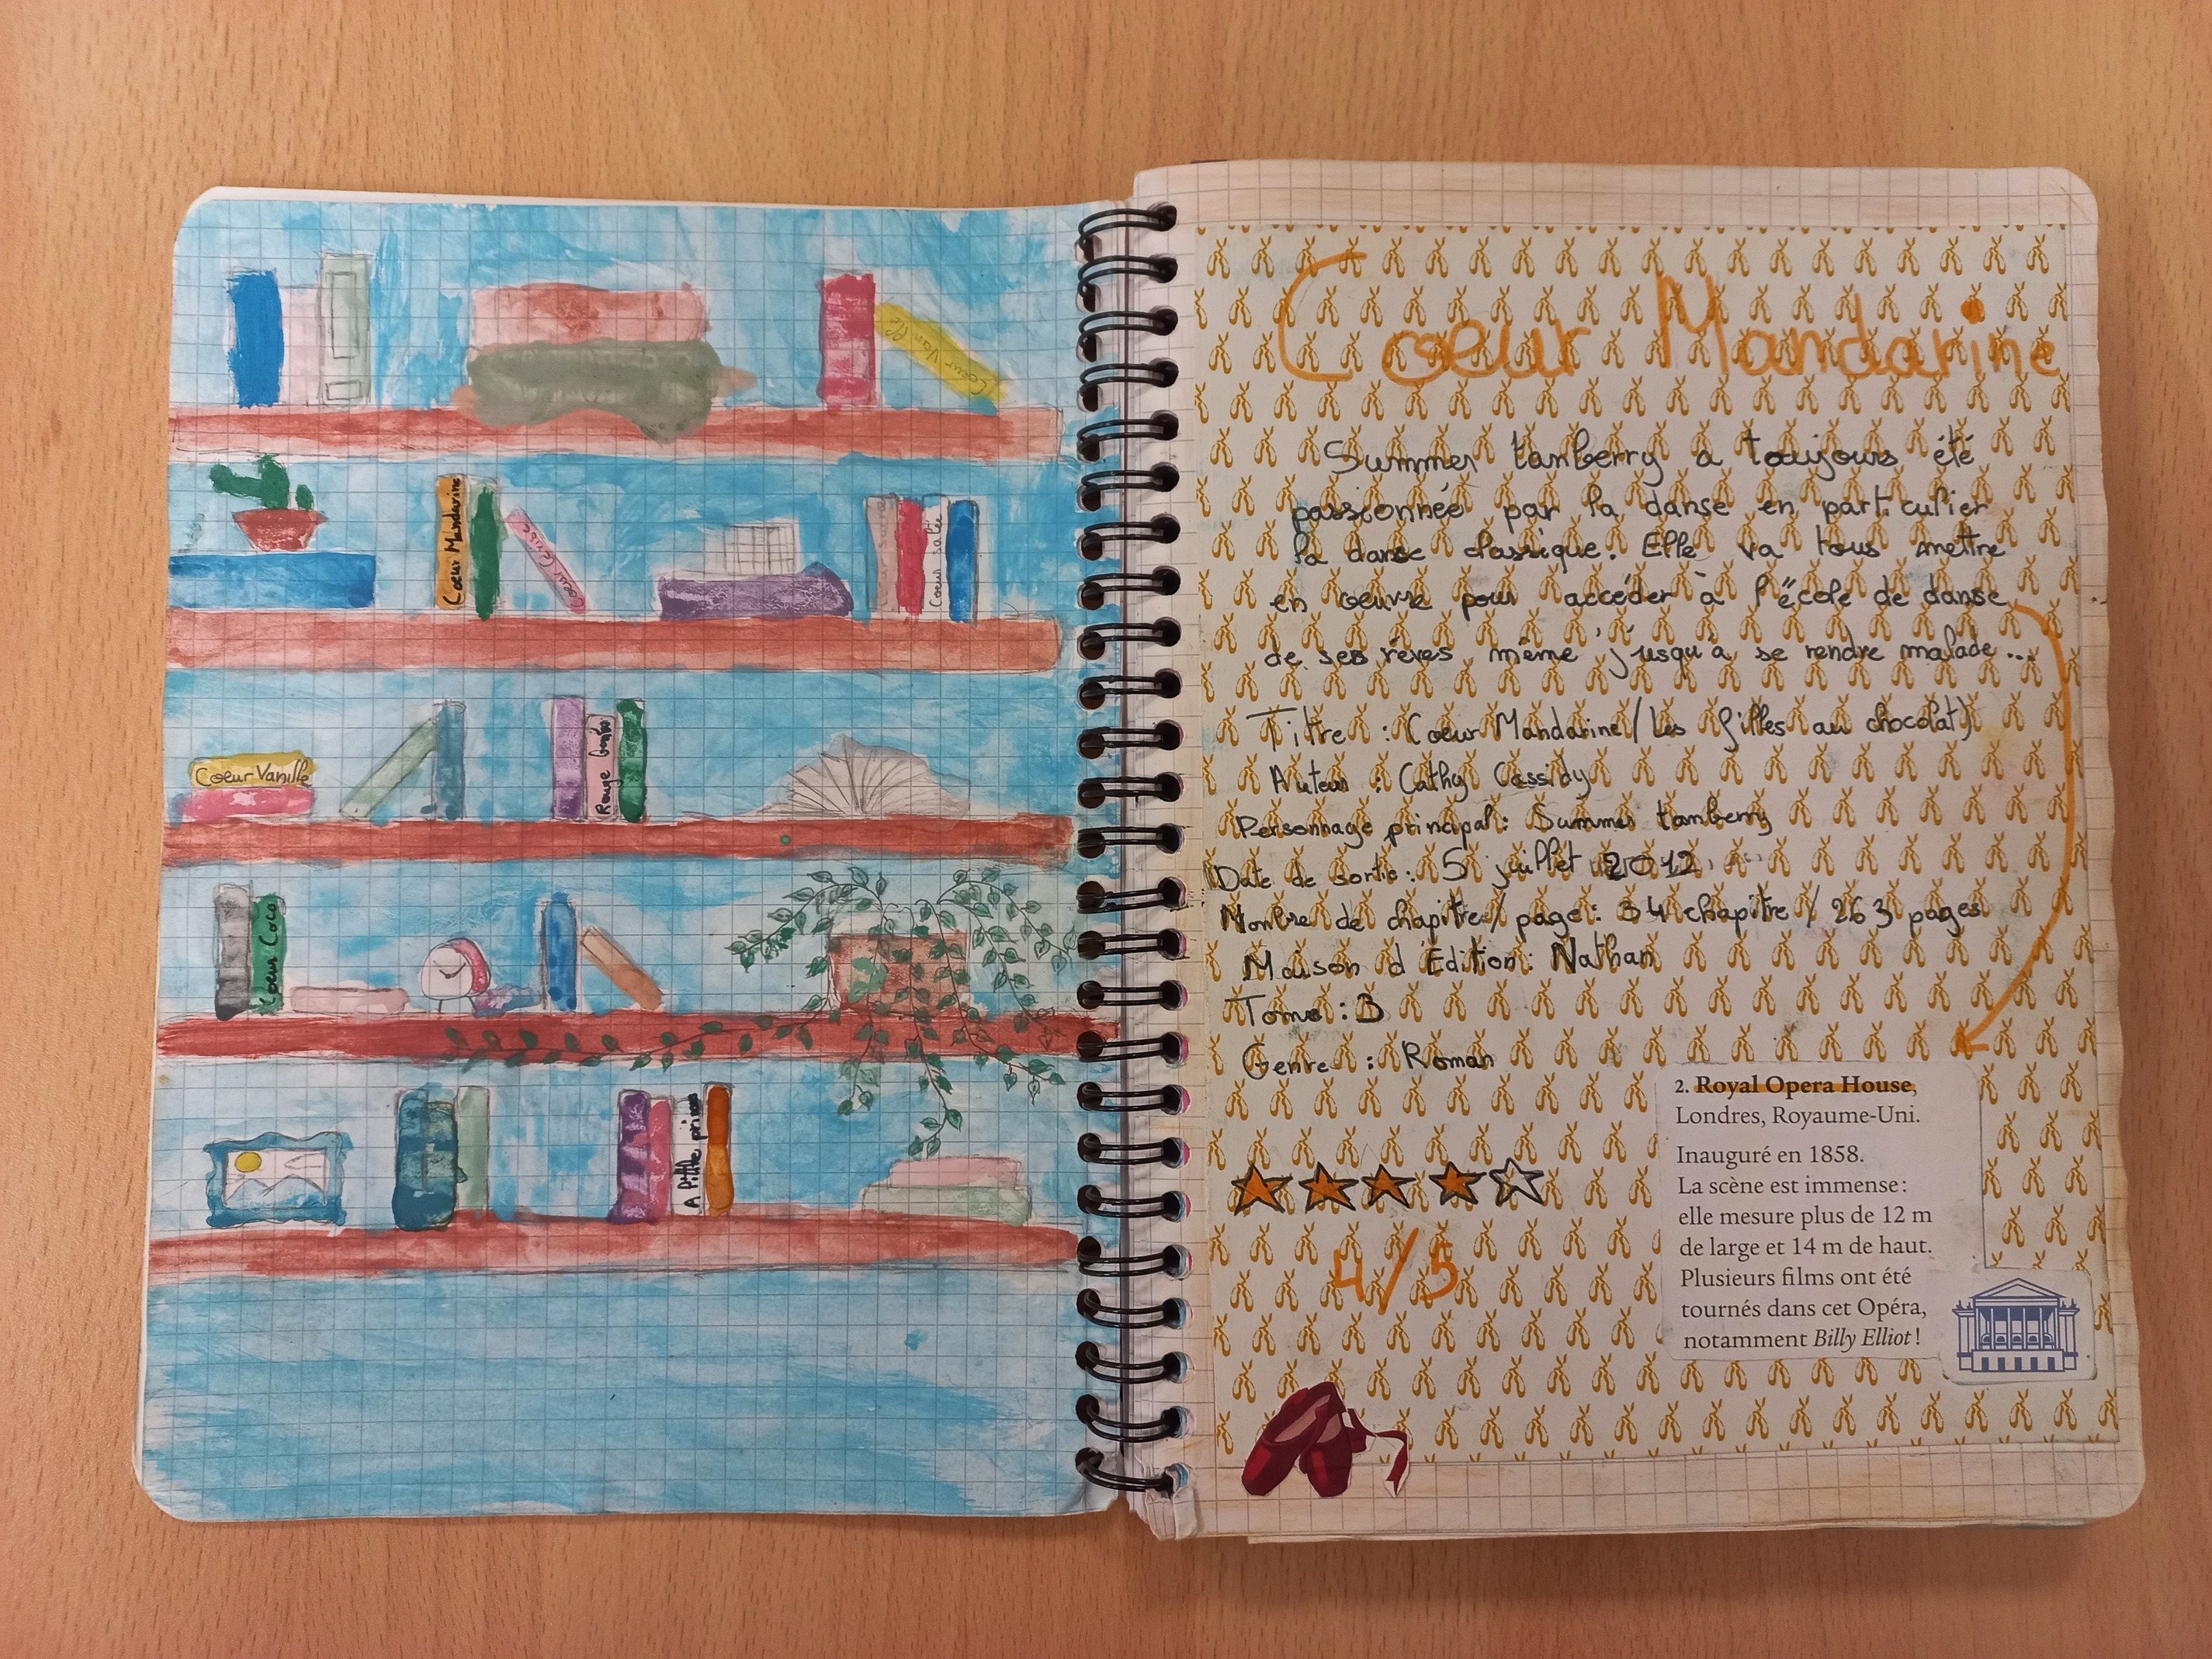 Coeur Vanille
Coeur Mandarine
Coeur Cerise
Coeur salé
Coeur Vanille
Rouge
Coeur Coco
A Little princess
Coeur Mandarine
Summer tanberry a toujours été
passionnée par la danse en particulier
la danse classique. Elle va tous mettre
en oeuvre pour accéder à l'école de danse
de ses rêves même jusqu'à se rendre malade...
Tiltre : Coeur Mandarine (Les filles au chocolat)
Auteur : Cathy Cassidy
Personnage principal : Summer tanberry
Date de sortie : 5 juillet 2012
Nombre de chapitre/page : 34 chapitre / 263 pages
Maison d'Édition : Nathan
Tome : 3
Genre : Roman
4/5
2. Royal Opera House,
Londres, Royaume-Uni.
Inauguré en 1858.
La scène est immense :
elle mesure plus de 12 m
de large et 14 m de haut.
Plusieurs films ont été
tournés dans cet Opéra,
notamment Billy Elliot !